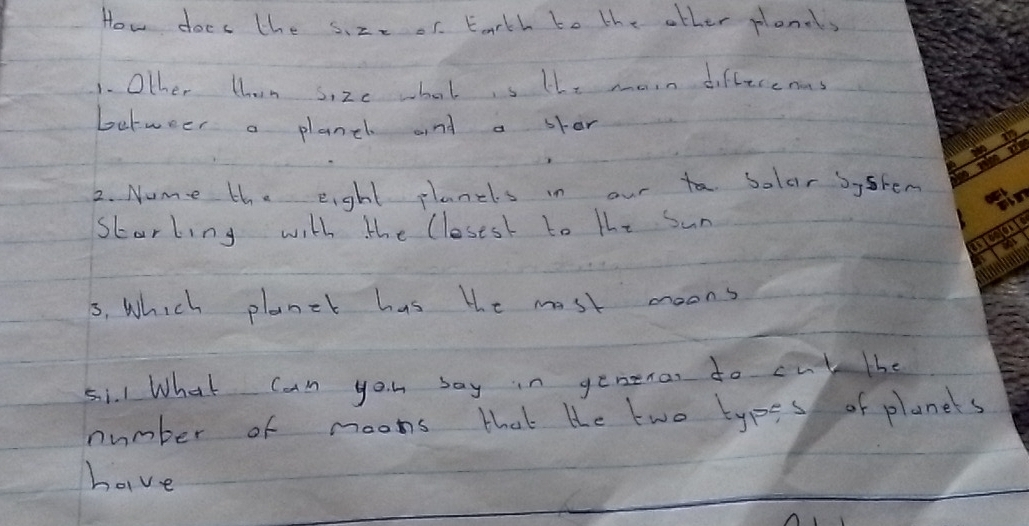 How does the size of Earth to the other planets
1. Other than size what is the main differens
between a planet and a star
2. Name the eight planets in our ta Solar System
Starting with the Closest to the Sun
3. Which planet has the most moons
3.1.1 What can you say in general the
number of moons that the two types of planets
have